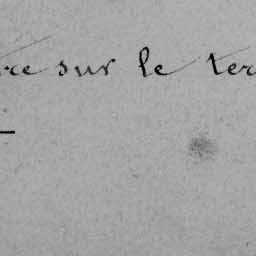 re sur le ter